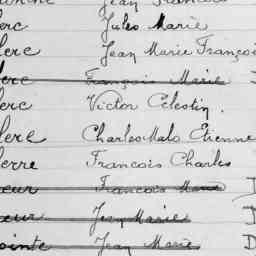 Jean François
erc Jules Marie
lerc Jean Marie Françoi
lerc François Marie
lerc Victor Célestin
lerc Charles Malo Etienne
lerre François Charles
œur François Marie D
œur Jean Marie D
ointe Jean Marie D